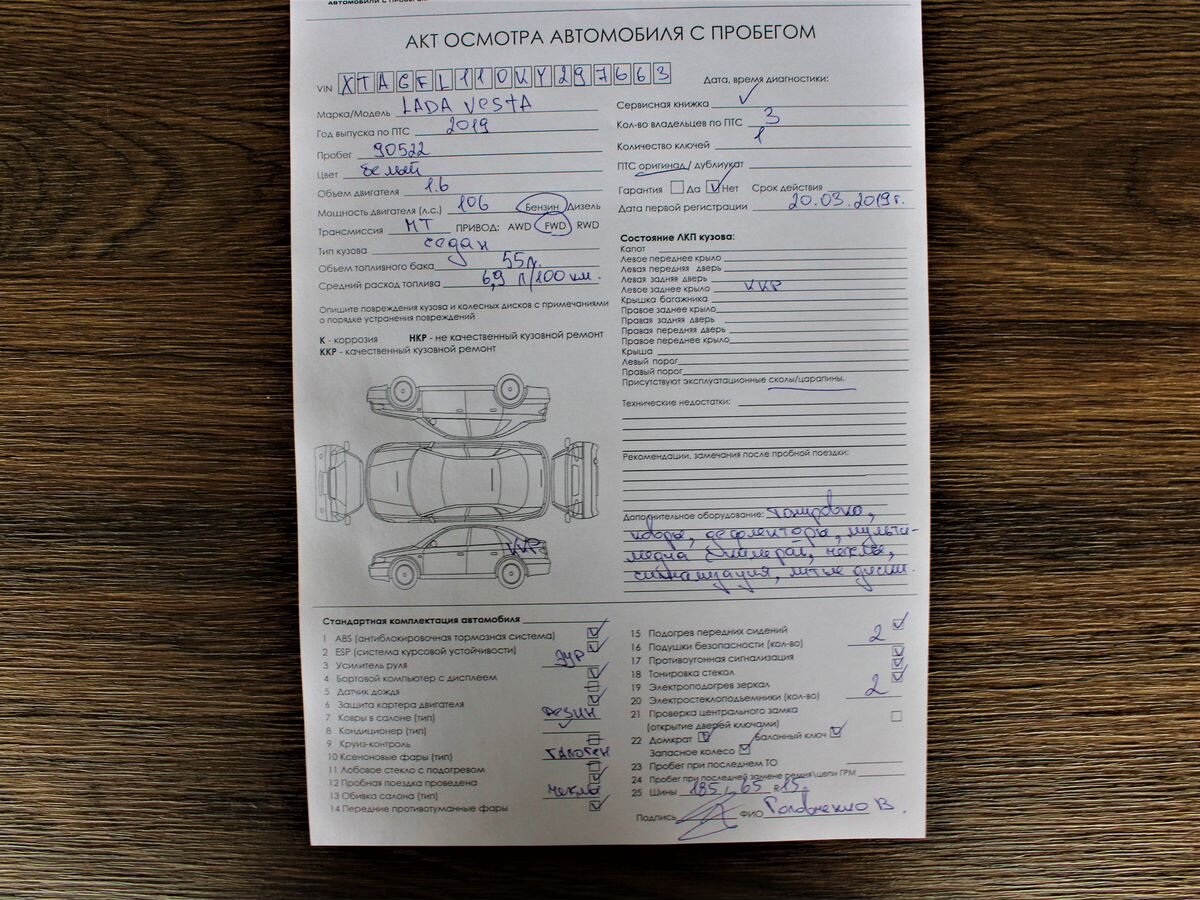 АВТОМОБИЛИ С ПРОБЕГОМ
АКТ ОСМОТРА АВТОМОБИЛЯ С ПРОБЕГОМ
VIN XTAGFL110KY297663
Марка/Модель LADA Vesta
Год выпуска по ПТС 2019
Пробег 90522
Цвет белый
Объем двигателя 1.6
Мощность двигателя (л.с.) 106 Бензин Дизель
Трансмиссия МТ ПРИВОД: AWD FWD RWD
Тип кузова седан
Объем топливного бака 55л.
Средний расход топлива 6,9 л/100 км.
Опишите повреждения кузова и колесных дисков с примечаниями
о порядке устранения повреждений
К - коррозия НКР - не качественный кузовной ремонт
ККР - качественный кузовной ремонт
ККР
Дата, время диагностики:
Сервисная книжка
Кол-во владельцев по ПТС 3
Количество ключей 1
ПТС оригинал/ дубликат
Гарантия Да Нет Срок действия
Дата первой регистрации 20.03.2019г.
Состояние ЛКП кузова:
Капот
Левое переднее крыло
Левая передняя дверь
Левая задняя дверь
Левое заднее крыло ККР
Крышка багажника
Правое заднее крыло
Правая задняя дверь
Правая передняя дверь
Правое переднее крыло
Крыша
Левый порог
Правый порог
Присутствуют эксплуатационные сколы/царапины.
Технические недостатки:
Рекомендации, замечания после пробной поездки:
Дополнительное оборудование: тонировка,
ковры, дефлекторы, мульти-
медиа, чехлы,
сигнализация, литые диски.
Стандартная комплектация автомобиля
1 ABS (антиблокировочная тормозная система)
2 ESP (система курсовой устойчивости)
3 Усилитель руля ЭУР
4 Бортовой компьютер с дисплеем
5 Датчик дождя
6 Защита картера двигателя
7 Ковры в салоне (тип) резин
8 Кондиционер (тип)
9 Круиз-контроль
10 Ксеноновые фары (тип) галоген
11 Лобовое стекло с подогревом
12 Пробная поездка проведена
13 Обивка салона (тип) чехлы
14 Передние противотуманные фары
15 Подогрев передних сидений
16 Подушки безопасности (кол-во) 2
17 Противоугонная сигнализация
18 Тонировка стекол
19 Электроподогрев зеркал
20 Электростеклоподъемники (кол-во) 2
21 Проверка центрального замка
(открытие дверей ключами)
22 Домкрат Балонный ключ
Запасное колесо
23 Пробег при последнем ТО
24 Пробег при последней замене ремня\цепи ГРМ
25 Шины 185 / 65 R15
Подпись ФИО Головченко В.